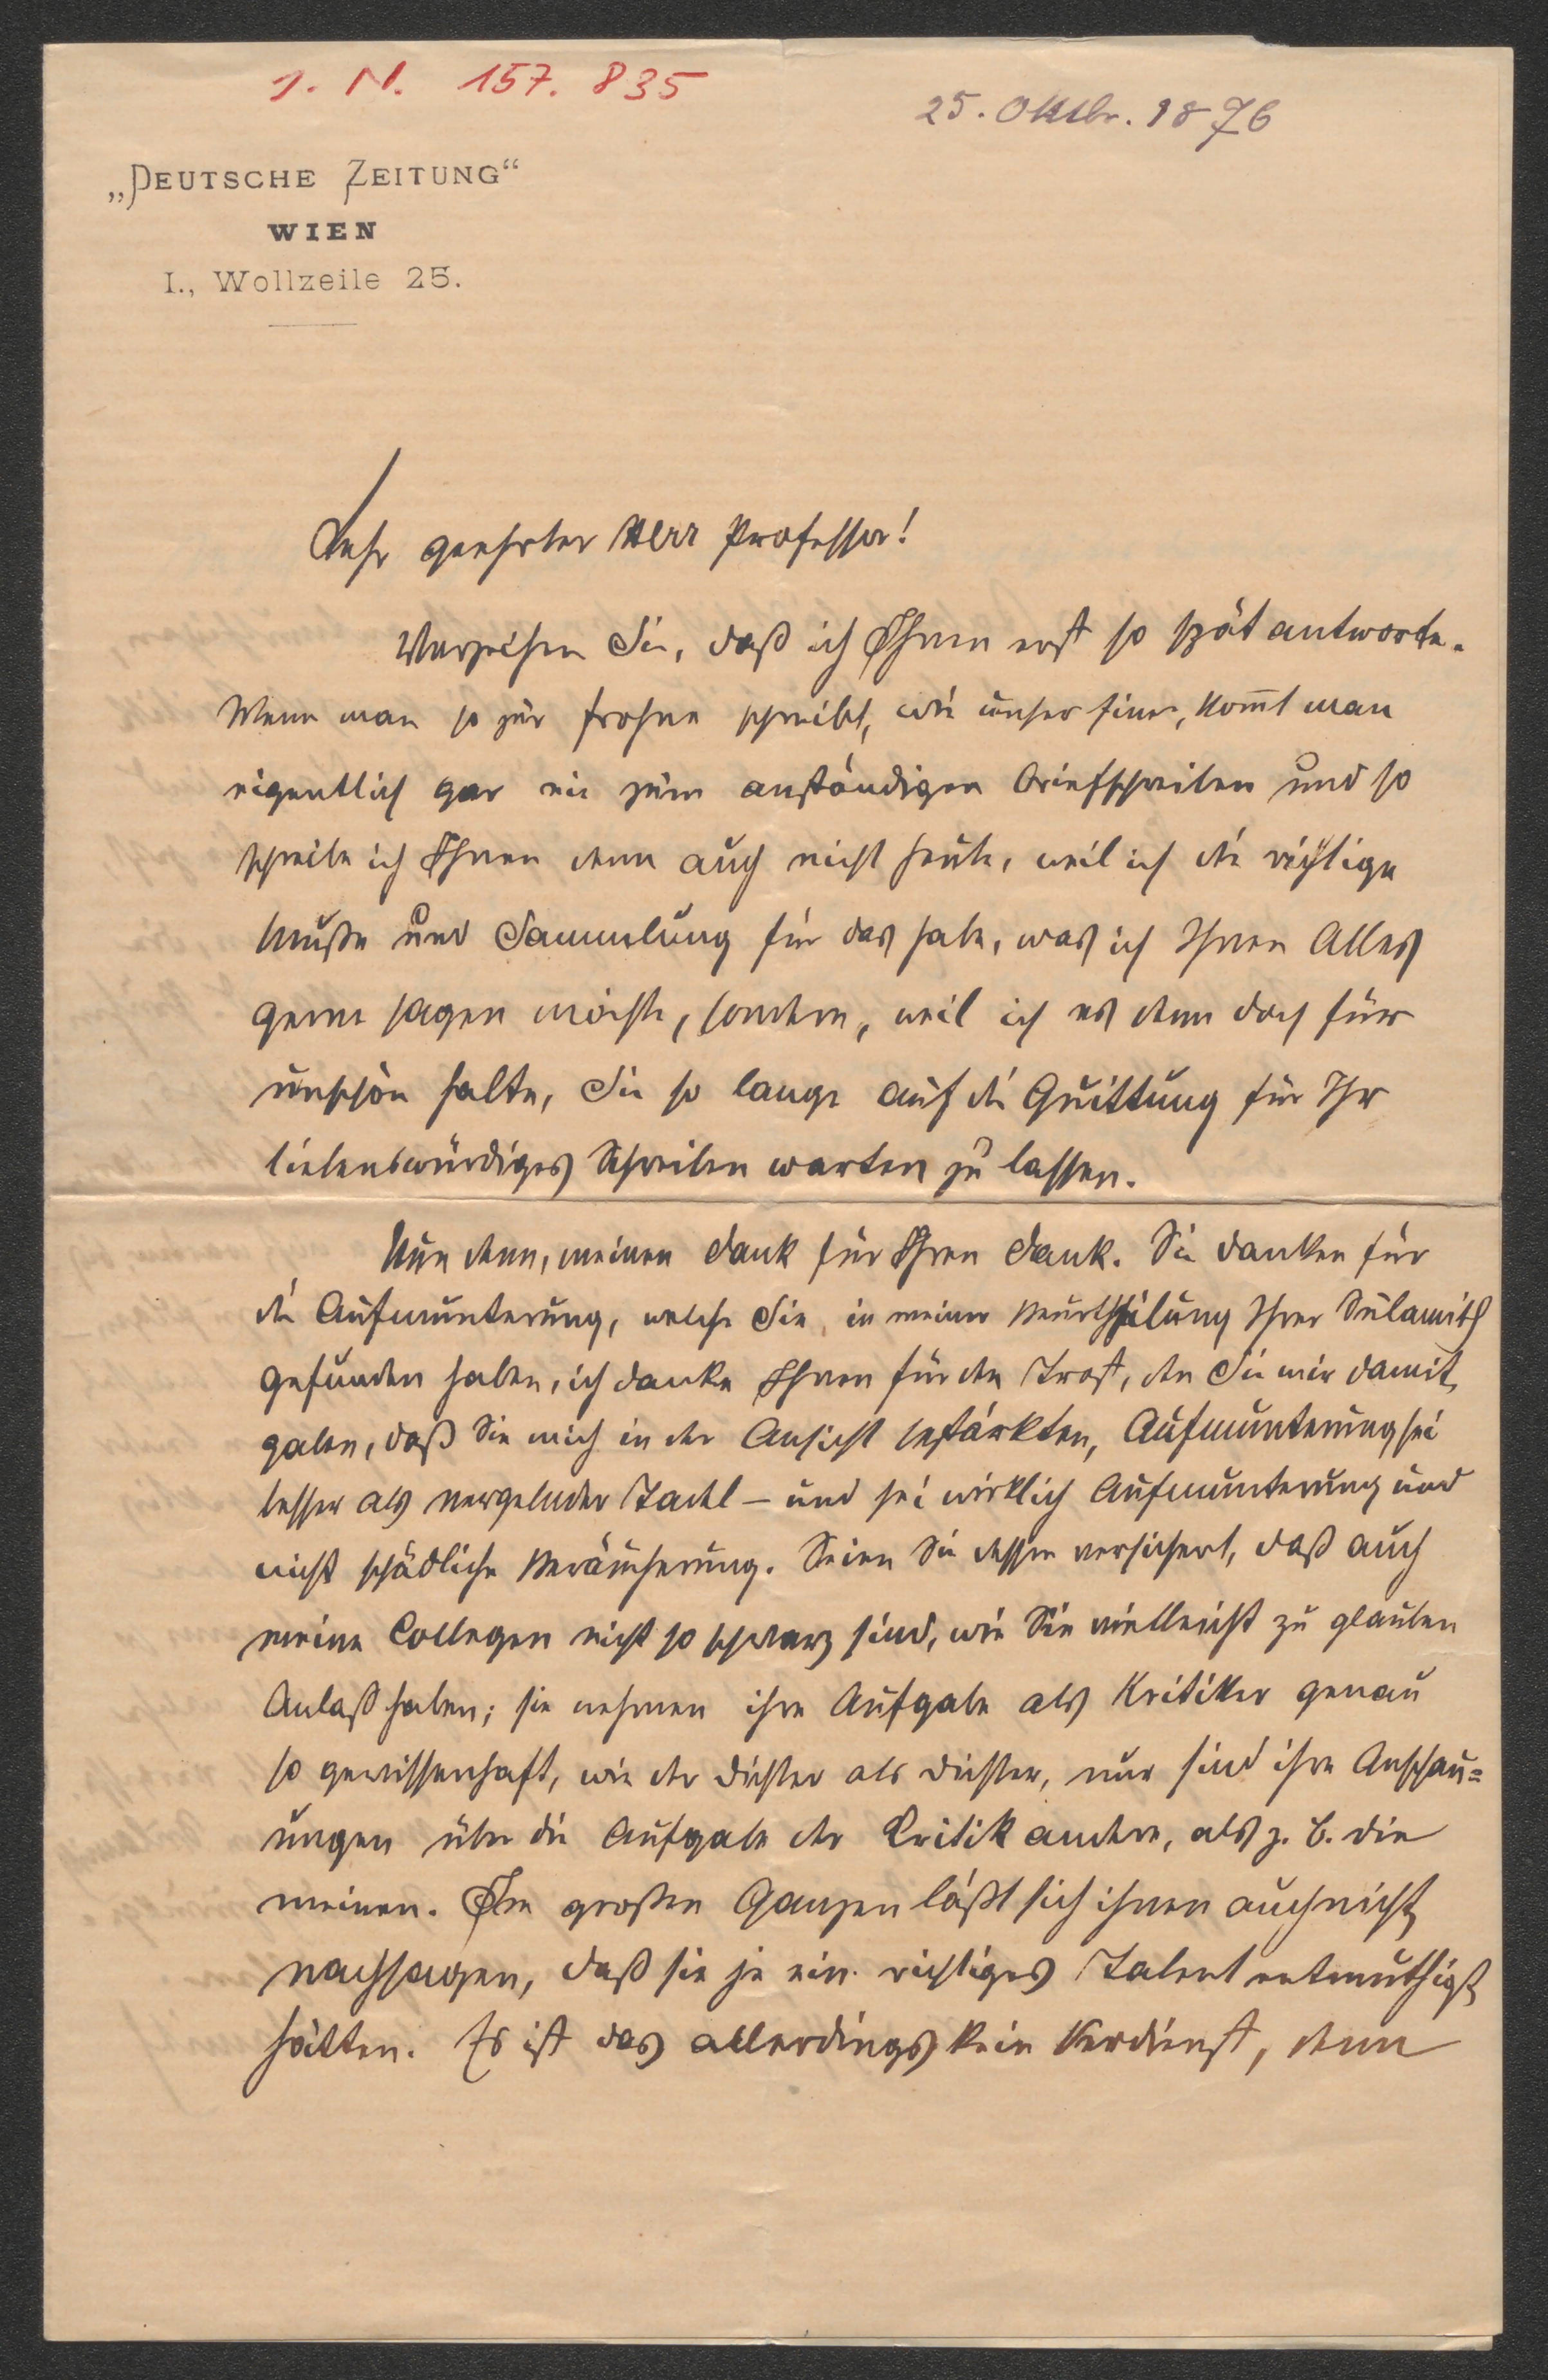 J. N. 157.835
25. Oktbr. 1876
„DEUTSCHE ZEITUNG“
WIEN
I., Wollzeile 25.
Sehr geehrter Herr Professor!
Verzeihen Sie, daß ich Ihnen erst so spät antworte.
Wenn man so zur Frohne schreibt, wie unser Einer, kom̅t man
eigentlich gar nie zum anständigen Briefschreiben und so
schreibe ich Ihnen denn auch nicht heute, weil ich die richtige
Muße und Sammlung für das habe, was ich Ihnen Alles
gerne sagen möchte, sondern, weil ich es denn doch für
unschön halte, Sie so lange auf die Quittung für Ihr
liebenswürdiges Schreiben warten zu lassen.
Nun denn, meinen Dank für Ihren Dank. Sie danken für
die Aufmunterung, welche Sie in meiner Beurtheilung Ihrer Sulamith
gefunden haben, ich danke Ihnen für den Trost, den Sie mir damit
gaben, daß Sie mich in der Ansicht bestärkten, Aufmunterung sei
besser als nergelnder Tadel – und sei wirklich Aufmunterung und
nicht schädliche Beräucherung. Seien Sie dessen versichert, daß auch
meine Collegen nicht so schwarz sind, wie Sie vielleicht zu glauben
Anlaß haben; sie nehmen ihre Aufgabe als Kritiker genau
so gewissenhaft, wie der Dichter als Dichter, nur sind ihre Anschau=
ungen über die Aufgabe der Kritik andere, als z. B. die
meinen. Im großen Ganzen läßt sich ihnen auch nicht
nachsagen, daß sie je ein richtiges Talent entmuthigt
hätten. Es ist das allerdings kein Verdienst, denn